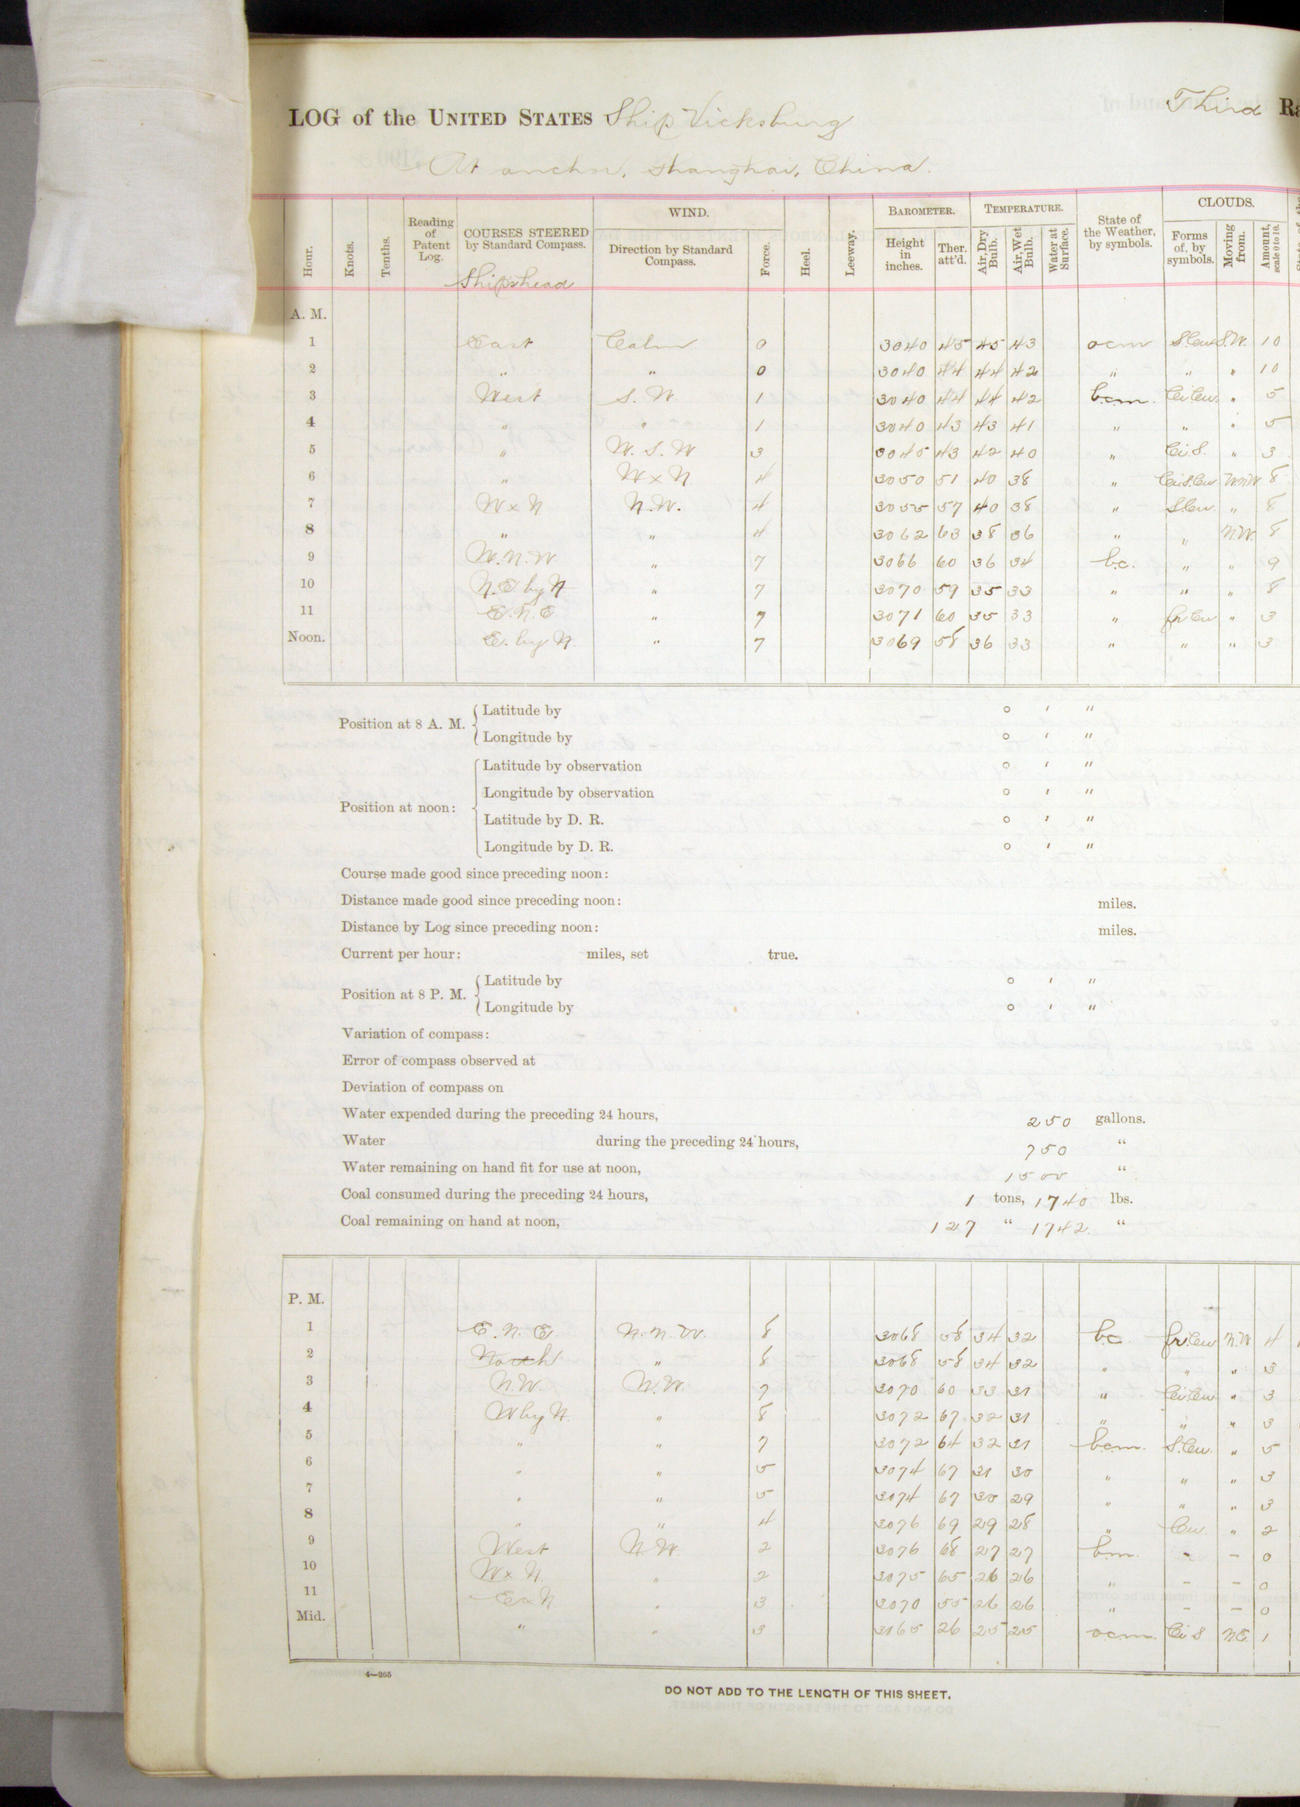 LOG of the UNITED STATES Ship Vicksburg Third Ra
At anchor, Shanghai, China.
Hour. Knots. Tenths. Reading of Patent Log. COURSES STEERED by Standard Compass. WIND. Direction by Standard Compass. Force. Heel. Leeway. BAROMETER. Height in inches. Ther. att'd. TEMPERATURE. Air, Dry Bulb. Air, Wet Bulb. Water at Surface. State of the Weather, by symbols. CLOUDS. Forms of, by symbols. Moving from. Amount, scale 0 to 10.
Ships head
A. M.
1 East Calm 0 3040 45 45 43 ocm S.Cu S.W. 10
2 " " 0 3040 44 44 42 " " " 10
3 West S.W 1 3040 44 44 42 bcm. Ci.Cu. " 5
4 " " 1 3040 43 43 41 " " " 5
5 " W.S.W 3 3045 43 42 40 " Ci.S. " 3
6 " W x N 4 3050 51 40 38 " Ci.S.Cu WNW 8
7 W x N N.W. 4 3055 57 40 38 " S.Cu. " 8
8 " " 4 3062 63 38 36 " " N.W. 8
9 W.N.W " 7 3066 60 36 34 bc. " " 9
10 N.E by N " 7 3070 59 35 33 " " " 8
11 E.N.E. " 7 3071 60 35 33 " fr Cu " 3
Noon. E. by N. " 7 3069 58 36 33 " " " 3
Position at 8 A. M. { Latitude by ° ' "
Longitude by ° ' "
Position at noon: { Latitude by observation ° ' "
Longitude by observation ° ' "
Latitude by D. R. ° ' "
Longitude by D. R. ° ' "
Course made good since preceding noon:
Distance made good since preceding noon: miles.
Distance by Log since preceding noon: miles.
Current per hour: miles, set true.
Position at 8 P. M. { Latitude by ° ' "
Longitude by ° ' "
Variation of compass:
Error of compass observed at
Deviation of compass on
Water expended during the preceding 24 hours, 250 gallons.
Water during the preceding 24 hours, 750 "
Water remaining on hand fit for use at noon, 1500 "
Coal consumed during the preceding 24 hours, 1 tons, 1740 lbs.
Coal remaining on hand at noon, 127 " 1742 "
P. M.
1 E.N.E. N.N.W. 8 3068 58 34 32 bc fr.Cu N.W 4
2 North " 8 3068 58 34 32 " " " 3
3 N.W. N.W. 7 3070 60 33 31 " Ci.Cu. " 3
4 W by N. " 8 3072 67 32 31 " " " 3
5 " " 7 3072 64 32 31 bcm. S.Cu. " 5
6 " " 5 3074 67 31 30 " " " 3
7 " " 5 3074 67 30 29 " " " 3
8 " " 4 3076 69 29 28 " Cu. " 2
9 West N.W. 2 3076 68 27 27 bm. - - 0
10 W x N. " 2 3075 65 26 26 " - - 0
11 E x N " 3 3070 55 26 26 " - - 0
Mid. " " 3 3165 26 25 25 ocm. Ci S N.E. 1
4—265
DO NOT ADD TO THE LENGTH OF THIS SHEET.